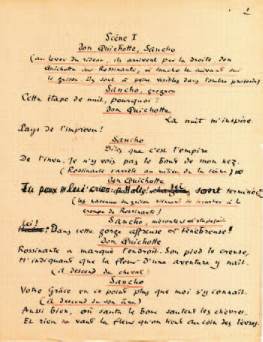 Scène I
Don Quichotte, Sancho
(au lever du rideau, ils arrivent par la droite. Don
Quichotte sur Rossinante, et Sancho le suivant sur
le grison. Ils sont à peine visibles dans l'ombre
Sancho, grognon
Cette étape de nuit, pourquoi?
Don Quichotte
La nuit m'inspire.
Pays de l'imprévu!
Sancho
Dites que c'est l'empire
De l'inconnu. Je n'y vois pas le bout de mon nez.
(Rossinante s'arrête au milieu de la scène)
Don Quichotte
Tu peux
sont terminés
croupe de Rossinante)
Sancho
Dans cette gorge affreuse et ténébreuse!
Don Quichotte
Rossinante a marqué l'endroit. Son pied le creuse,
M'indiquant que la fleur d'une aventure y naît.
(il descend du cheval)
Sancho
Votre Grâce en ce point plus que moi s'y connaît.
(il descend de son âne)
Aussi bien, où saute le bouc sautent les chèvres,
Et rien ne vaut la fleur qu'on tient au coin des lèvres.